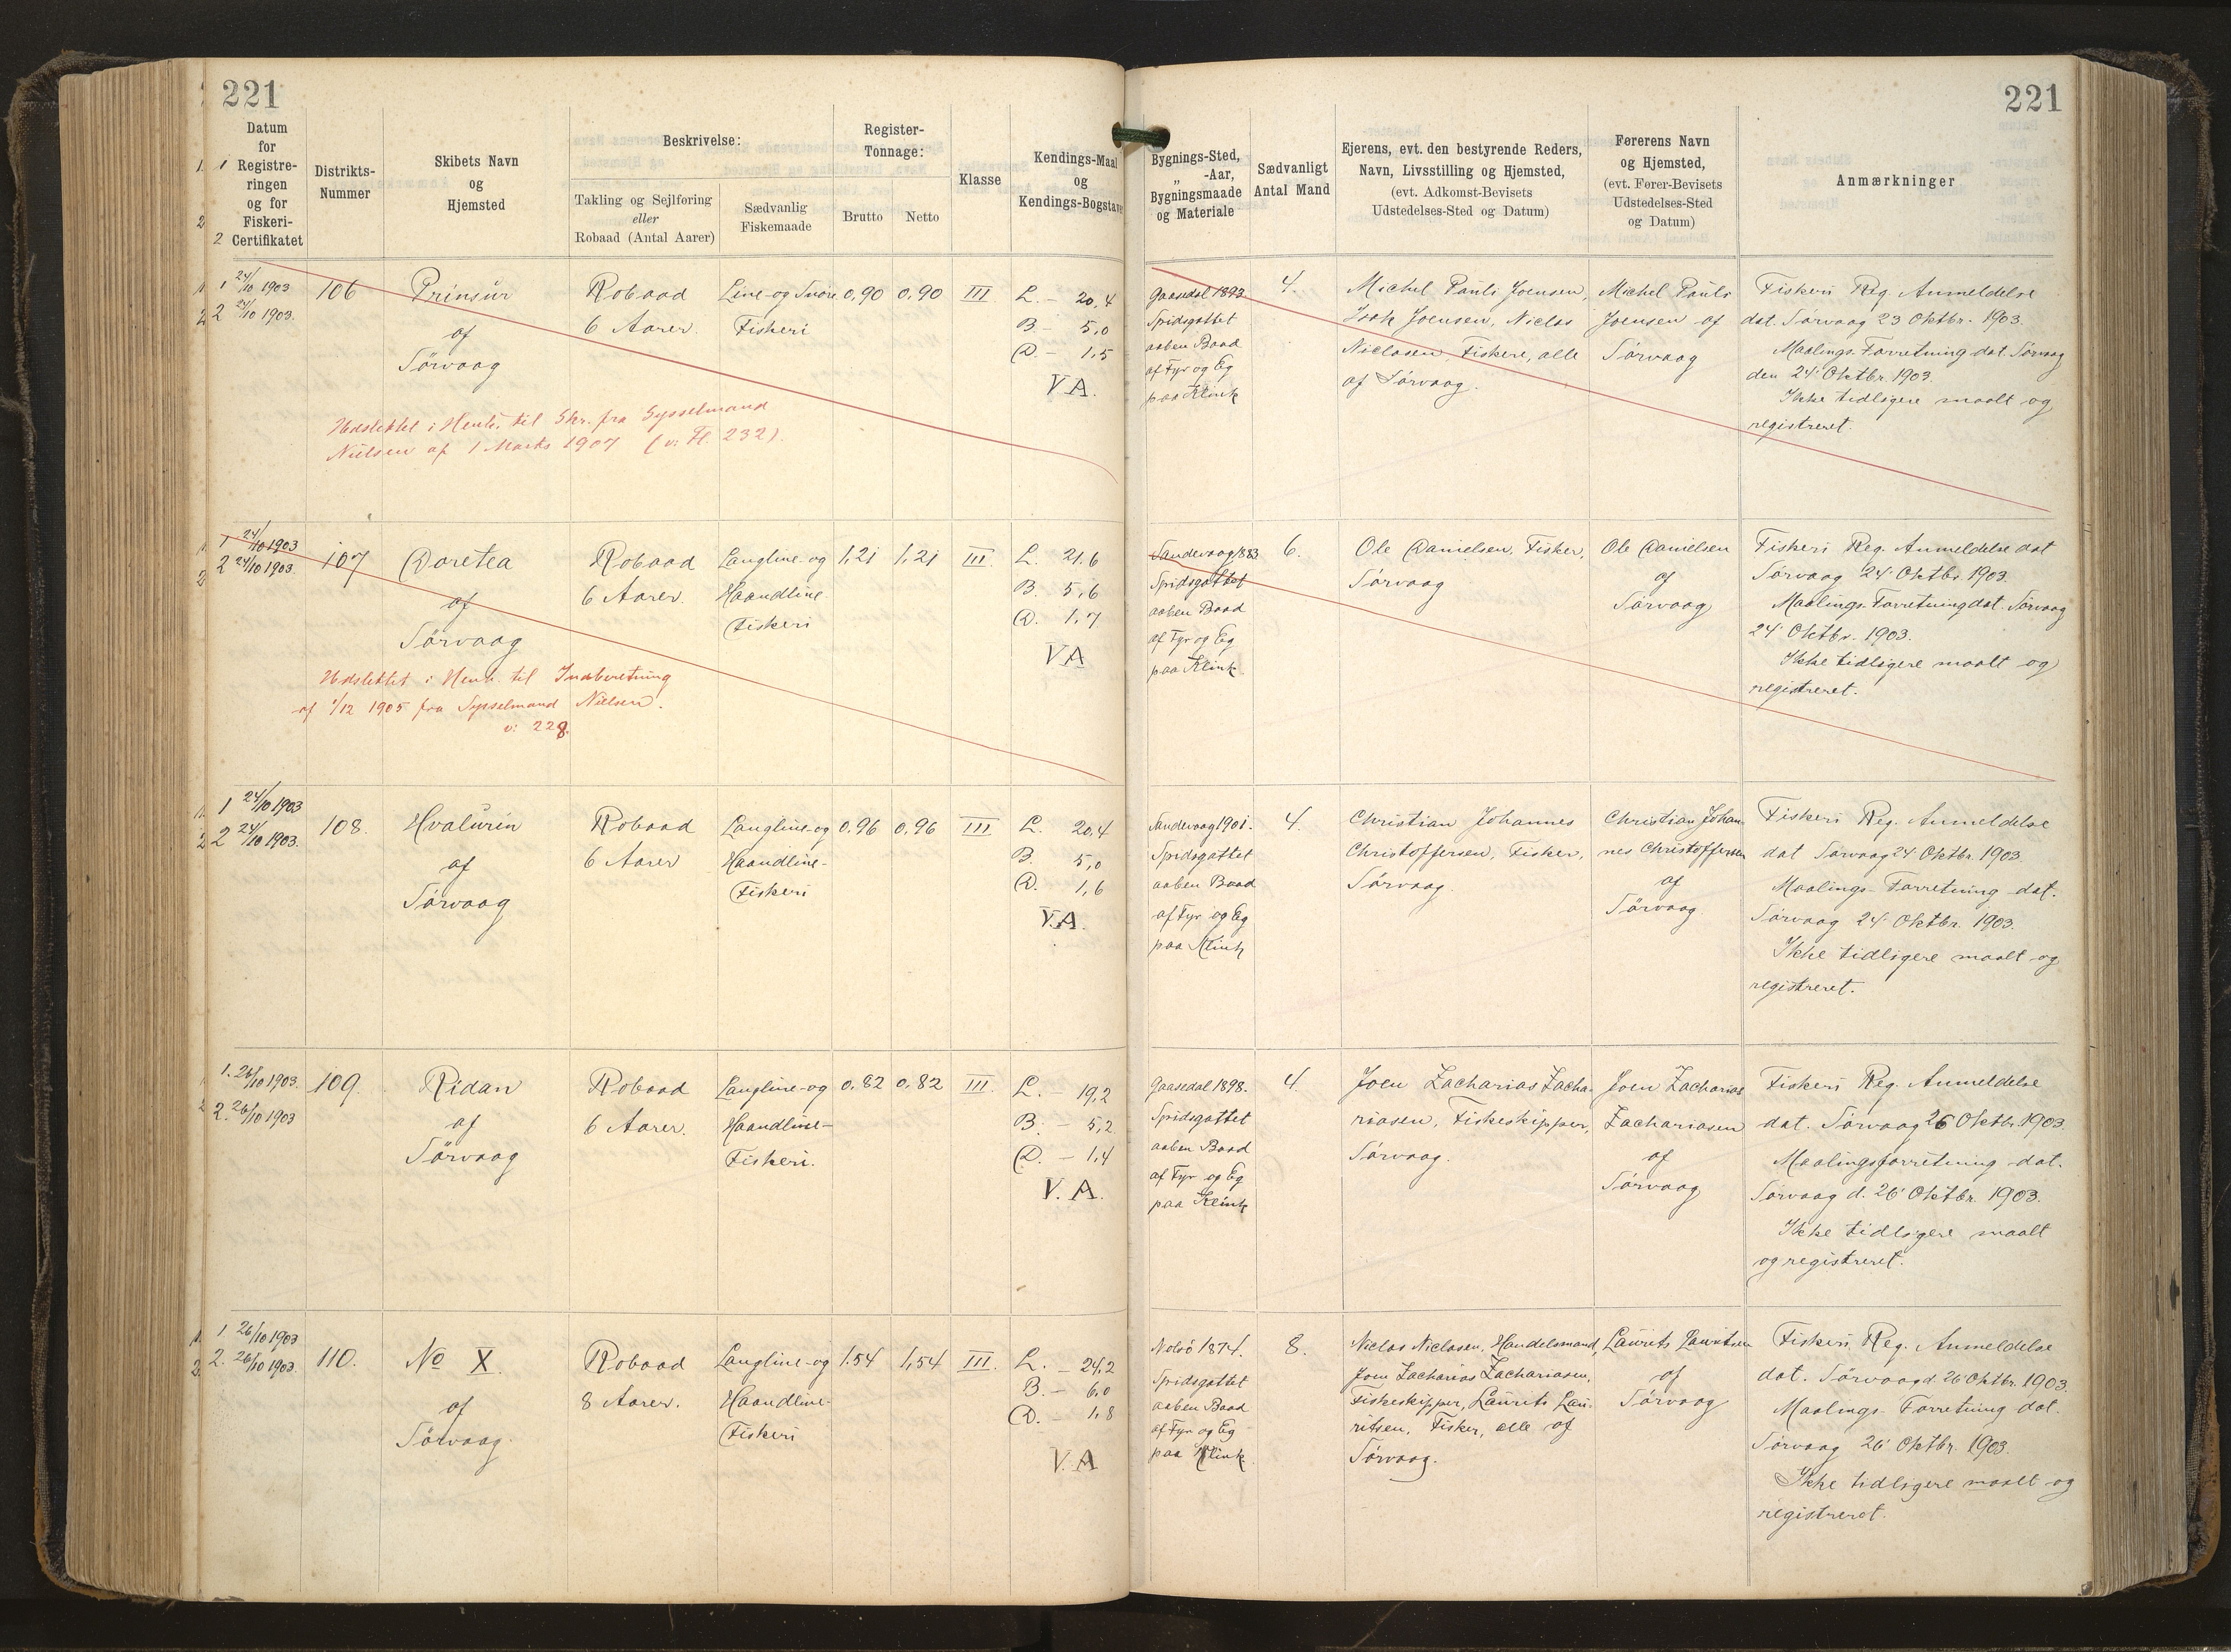 221
221
Datum
for
Registre-
ringen
og for
Fiskeri-
Certifikatet
Distrikts-
Nummer
Skibets Navn
og
Hjemsted
Beskrivelse:
Takling og Sejlføring
eller
Robaad (Antal Aarer)
Sædvanlig
Fiskemaade
Register-
Tonnage:
Brutto
Netto
Klasse
Kendings-Maal
og
Kendings-Bogstaver
Bygnings-Sted,
„ -Aar,
Bygningsmaade
og Materiale
Sædvanligt
Antal Mand
Ejerens, evt. den bestyrende Reders,
Navn, Livsstilling og Hjemsted,
(evt. Adkomst-Bevisets
Udstedelses-Sted og Datum)
Førerens Navn
og Hjemsted,
(evt. Fører-Bevisets
Udstedelses-Sted
og Datum)
Anmærkninger
1 24/10 1903
2 24/10 1903.
106
Prinsur
af
Sörvaag
Robaad
6 Aarer.
Line- og Snöre
Fiskeri
0,90
0,90
III
L. - 20,4
B. - 5,0
D. - 1,5
V.A.
Gaasedal 1893
Spidsgattet
aaben Baad
af Fyr og Eg
paa Klink
4.
Michel Pauli Joensen,
Isak Joensen, Niclas
Niclasen, Fiskere, alle
af Sörvaag.
Michel Pauli
Joensen af
Sörvaag
Fiskeri Reg. Anmeldelse
dat. Sörvaag 23 Oktbr. 1903.
Maalings-Forretning dat. Sörvaag
den 24' Oktbr. 1903.
Ikke tidligere maalt og
registreret.
Udslettet i Henh. til Skr. fra Sysselmand
Nielsen af 1 Marts 1907 (v: Fl. 232).
1 24/10 1903
2 24/10 1903.
107
Doretea
af
Sörvaag
Robaad
6 Aarer.
Langline- og
Haandline
Fiskeri
1,21
1,21
III.
L. 21.6
B. 5,6
D. 1,7
V.A
Sandevaag 1883
Spidsgattet
aaben Baad
af Fyr og Eg
paa Klink.
6.
Ole Danielsen, Fisker,
Sörvaag
Ole Danielsen
af
Sörvaag
Fiskeri Reg. Anmeldelse dat
Sörvaag 24' Oktbr. 1903.
Maalings-Forretning dat. Sörvaag
24' Oktbr. 1903.
Ikke tidligere maalt og
registreret.
Udslettet i Henh. til Indberetning
af 1/12 1905 fra Sysselmand Nielsen.
v: 228.
1 24/10 1903
2 24/10 1903.
108.
Hvalurin
af
Sörvaag
Robaad
6 Aarer
Langline- og
Haandline-
Fiskeri
0.96
0,96
III
L. 20,4
B. 5,0
D. 1,6
V.A.
Sandevaag 1901.
Spidsgattet
aaben Baad
af Fyr og Eg
paa Klink
4.
Christian Johannes
Christoffersen, Fisker,
Sörvaag.
Christian Johan-
nes Christoffersen
af
Sörvaag
Fiskeri Reg. Anmeldelse
dat Sörvaag 24' Oktbr. 1903.
Maalings-Forretning dat.
Sörvaag 24' Oktbr. 1903.
Ikke tidligere maalt og
registreret.
1. 26/10 1903.
2. 26/10 1903
109.
Ridan
af
Sörvaag
Robaad
6 Aarer.
Langline- og
Haandline-
Fiskeri.
0.82
0,82
III.
L. - 19,2
B. - 5,2
D. - 1,4
V.A.
Gaasedal 1898.
Spidsgattet
aaben Baad
af Fyr og Eg
paa Klink
4.
Joen Zacharias Zacha-
riasen, Fiskeskipper,
Sörvaag.
Joen Zacharias
Zachariasen
af
Sörvaag
Fiskeri Reg. Anmeldelse
dat. Sörvaag 26 Oktbr. 1903.
Maalingsforretning dat.
Sörvaag d. 26' Oktbr. 1903.
Ikke tidligere maalt
og registreret.
1. 26/10 1903
2. 26/10 1903.
110.
No X.
af
Sörvaag.
Robaad
8 Aarer.
Langline- og
Haandline-
Fiskeri
1.54
1,54
III.
L. - 24,2
B. - 6,0
D. - 1,8
V.A
Nolsö 1874.
Spidsgattet
aaben Baad
af Fyr og Eg
paa Klink
8.
Niclas Niclasen, Handelsmand,
Joen Zacharias Zachariasen,
Fiskeskipper, Laurits Lau-
ritsen, Fisker, alle af
Sörvaag.
Laurits Lauritsen
af
Sörvaag
Fiskeri Reg. Anmeldelse
dat. Sörvaag d. 26' Oktbr. 1903.
Maalings-Forretning dat.
Sörvaag 26' Oktbr. 1903.
Ikke tidligere maalt og
registreret.